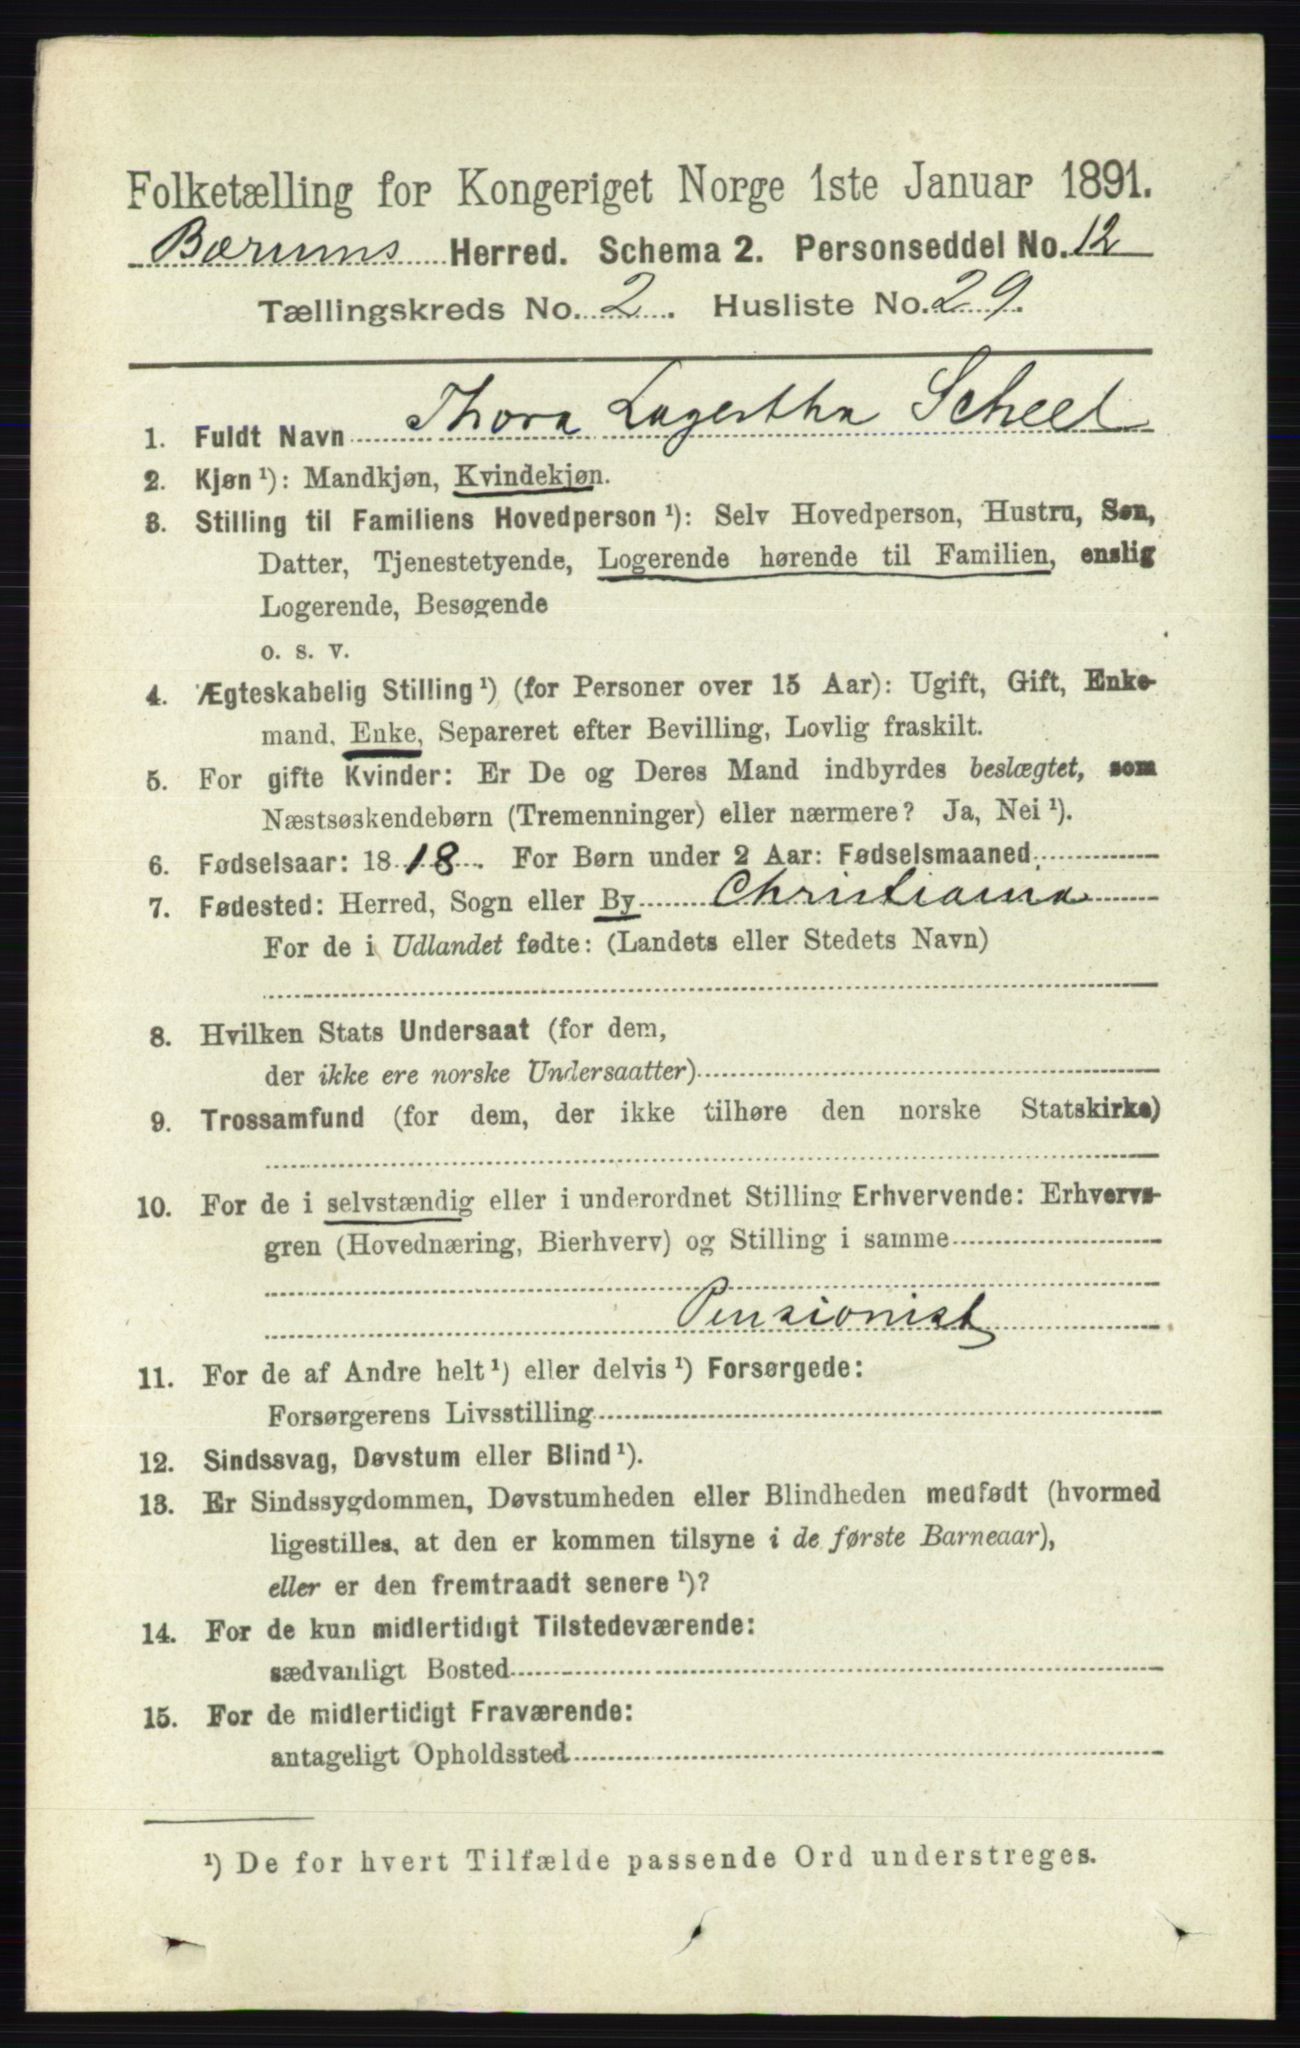 Folketælling for Kongeriget Norge 1ste Januar 1891.
Bærums Herred. Schema 2. Personseddel No. 12
Tællingskreds No. 2. Husliste No. 29.
1. Fuldt Navn Thora Lagertha Scheel
2. Kjøn ¹): Mandkjøn, Kvindekjøn.
3. Stilling til Familiens Hovedperson ¹): Selv Hovedperson, Hustru, Søn,
Datter, Tjenestetyende, Logerende hørende til Familien, enslig
Logerende, Besøgende
o. s. v.
4. Ægteskabelig Stilling ¹) (for Personer over 15 Aar): Ugift, Gift, Enke-
mand, Enke, Separeret efter Bevilling, Lovlig fraskilt.
5. For gifte Kvinder: Er De og Deres Mand indbyrdes beslægtet, som
Næstsøskendebørn (Tremenninger) eller nærmere? Ja, Nei ¹).
6. Fødselsaar: 1818. For Børn under 2 Aar: Fødselsmaaned
7. Fødested: Herred, Sogn eller By Christiania
For de i Udlandet fødte: (Landets eller Stedets Navn)
8. Hvilken Stats Undersaat (for dem,
der ikke ere norske Undersaatter)
9. Trossamfund (for dem, der ikke tilhøre den norske Statskirke)
10. For de i selvstændig eller i underordnet Stilling Erhvervende: Erhvervs-
gren (Hovednæring, Bierhverv) og Stilling i samme
Pensionist
11. For de af Andre helt ¹) eller delvis ¹) Forsørgede:
Forsørgerens Livsstilling
12. Sindssvag, Døvstum eller Blind ¹).
13. Er Sindssygdommen, Døvstumheden eller Blindheden medfødt (hvormed
ligestilles, at den er kommen tilsyne i de første Barneaar),
eller er den fremtraadt senere ¹)?
14. For de kun midlertidigt Tilstedeværende:
sædvanligt Bosted
15. For de midlertidigt Fraværende:
antageligt Opholdssted
¹) De for hvert Tilfælde passende Ord understreges.